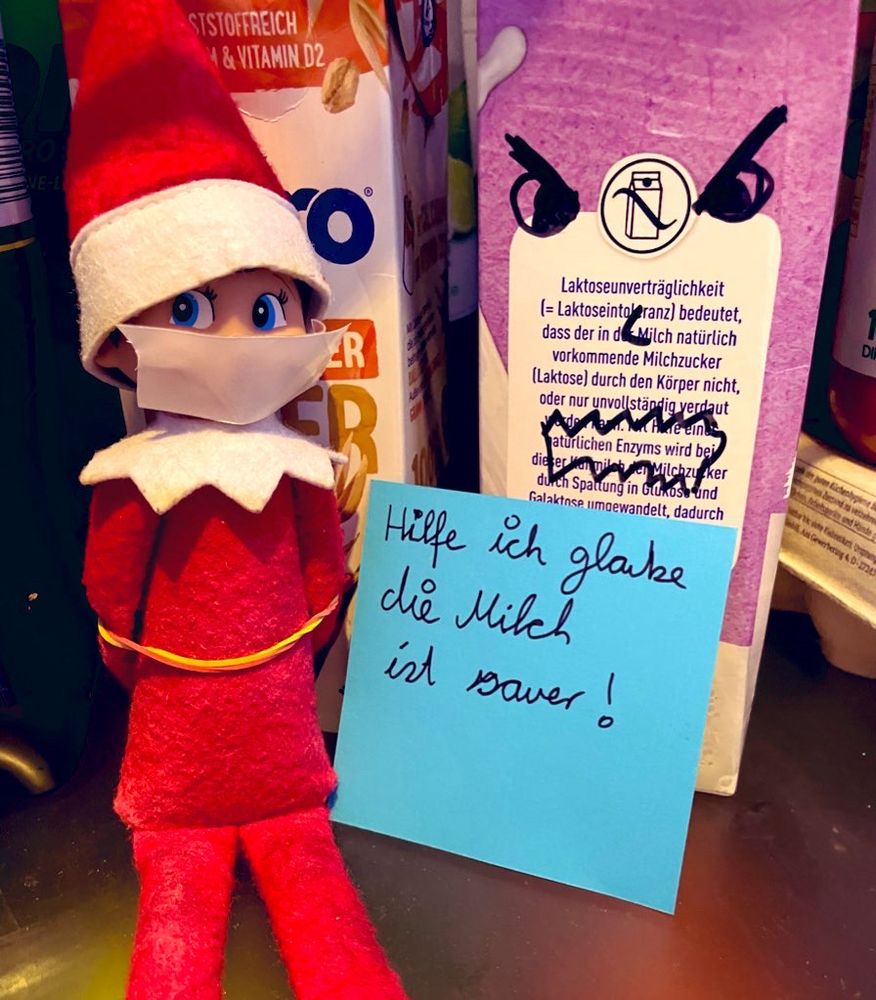 STSTOFFREICH
& VITAMIN D2
®
ER
Laktoseunverträglichkeit
(= Laktoseintoleranz) bedeutet,
dass der in der Milch natürlich
vorkommende Milchzucker
(Laktose) durch den Körper nicht,
oder nur unvollständig verdaut
werden kann. Mit Hilfe eines
natürlichen Enzyms wird bei
dieser Kuhmilch der Milchzucker
durch Spaltung in Glukose und
Galaktose umgewandelt, dadurch
Hilfe ich glaube
die Milch
ist sauer!